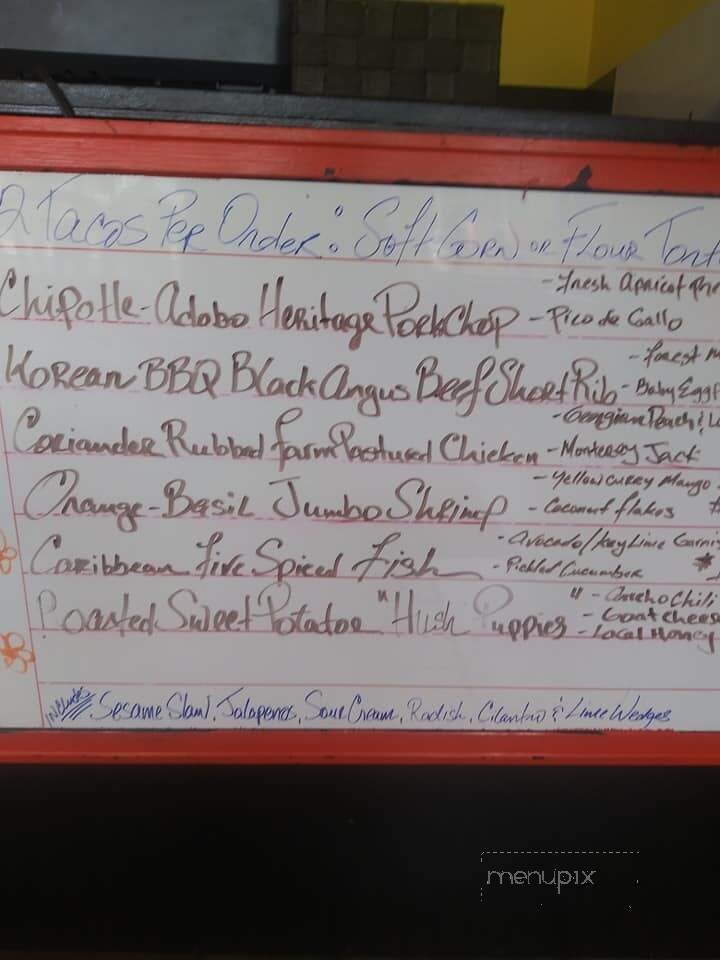 2 Tacos Per Order: Soft Corn or Flour
- Fresh Apricot
Chipotle-Adobo Heritage Pork Chop - Pico de Gallo
- Forest
Korean BBQ Black Angus Beef Short Rib - Baby
- Georgian Peach &
Coriander Rubbed Farm Pastured Chicken - Monterey Jack
- Yellow Curry Mango
Orange-Basil Jumbo Shrimp - Coconut flakes
- Avocado/Key Lime
Caribbean Five Spiced Fish - Pickled Cucumber
- Ancho Chili
Roasted Sweet Potatoe "Hush Puppies" - Goat Cheese
- Local Honey
includes Sesame Slaw, Jalapenos, Sour Cream, Radish, Cilantro & Lime Wedges
menupix